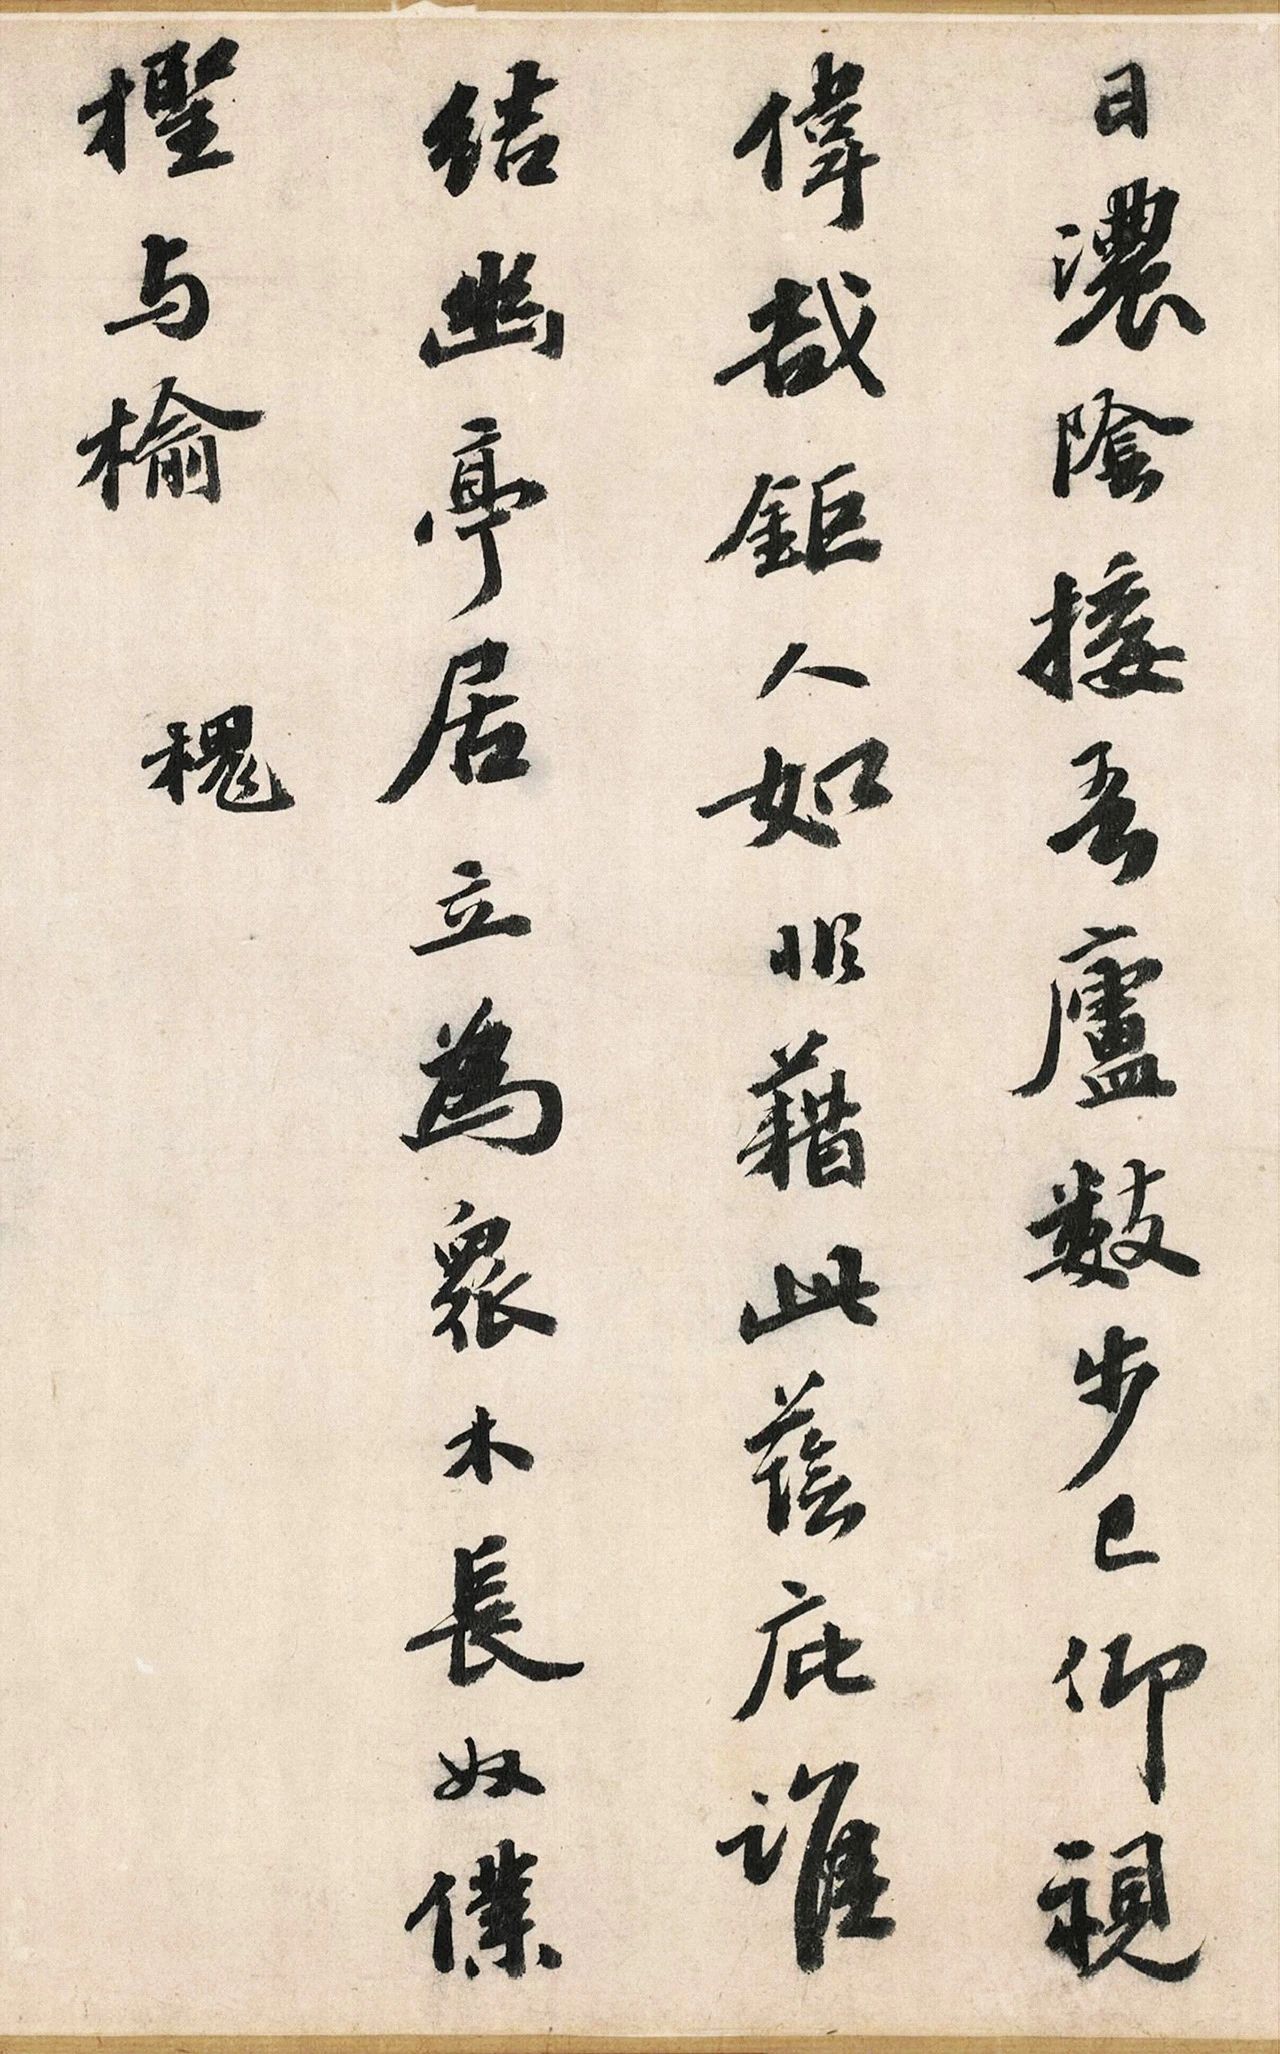 日濃陰接吾廬數步已仰視
偉哉鉅人如非藉此蔭庇誰
結幽亭居立為衆木長奴僕
檉与榆 槐